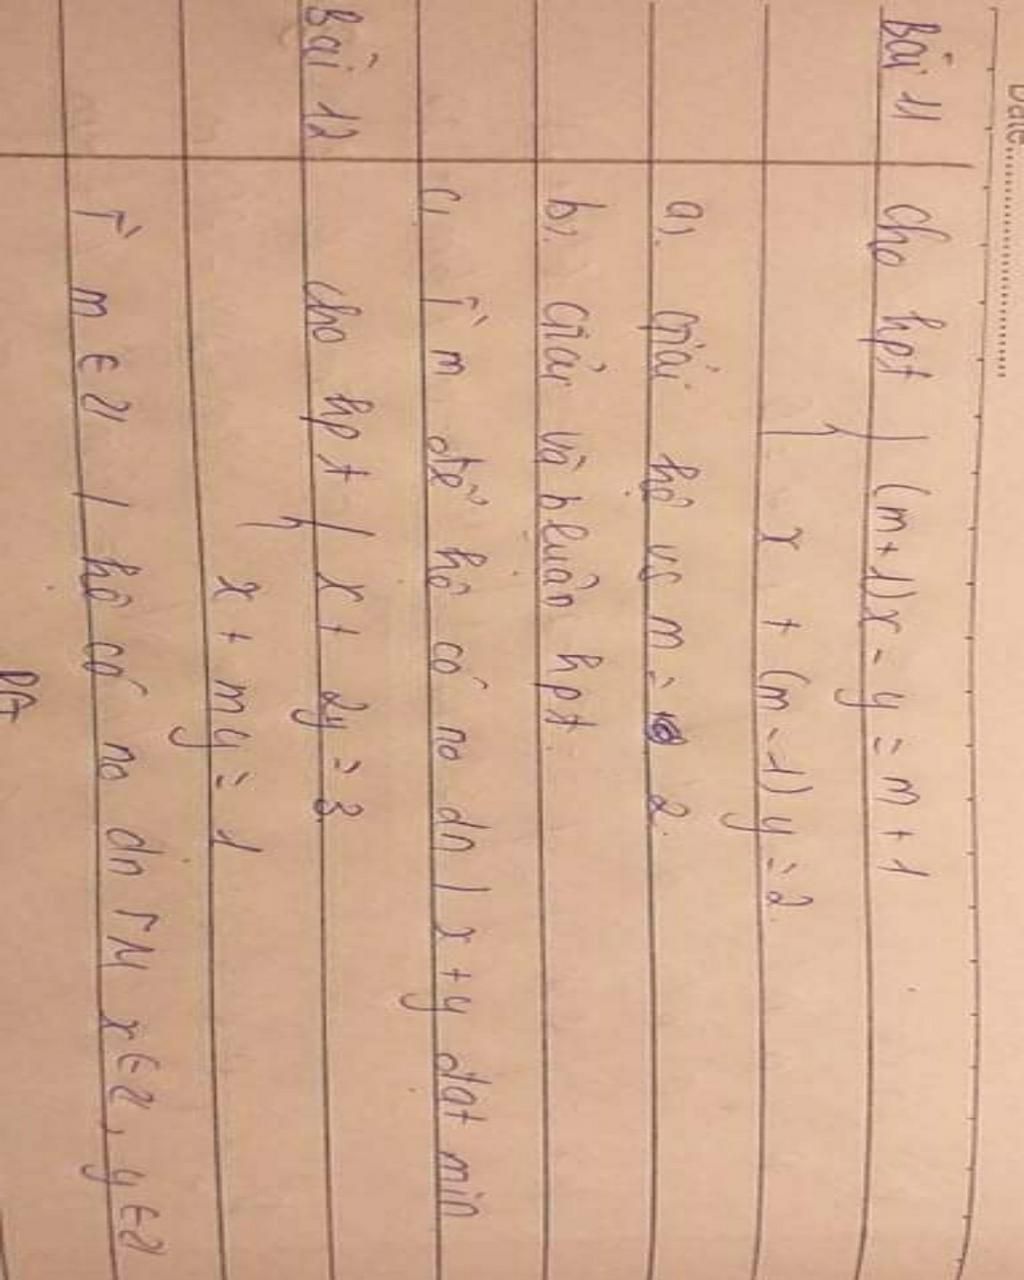 Date
Bài 11 cho hpt { (m+1)x - y = m+1
x + (m-1)y = 2
a, Giải hệ vs m = 2
b, Giải và bluận hpt
c, T m để hệ có no dn / x+y đạt min
Bài 12 cho hpt { x + 2y = 3
x + my = 1
T m ∈ Z / hệ có no dn TM x ∈ Z, y ∈ Z